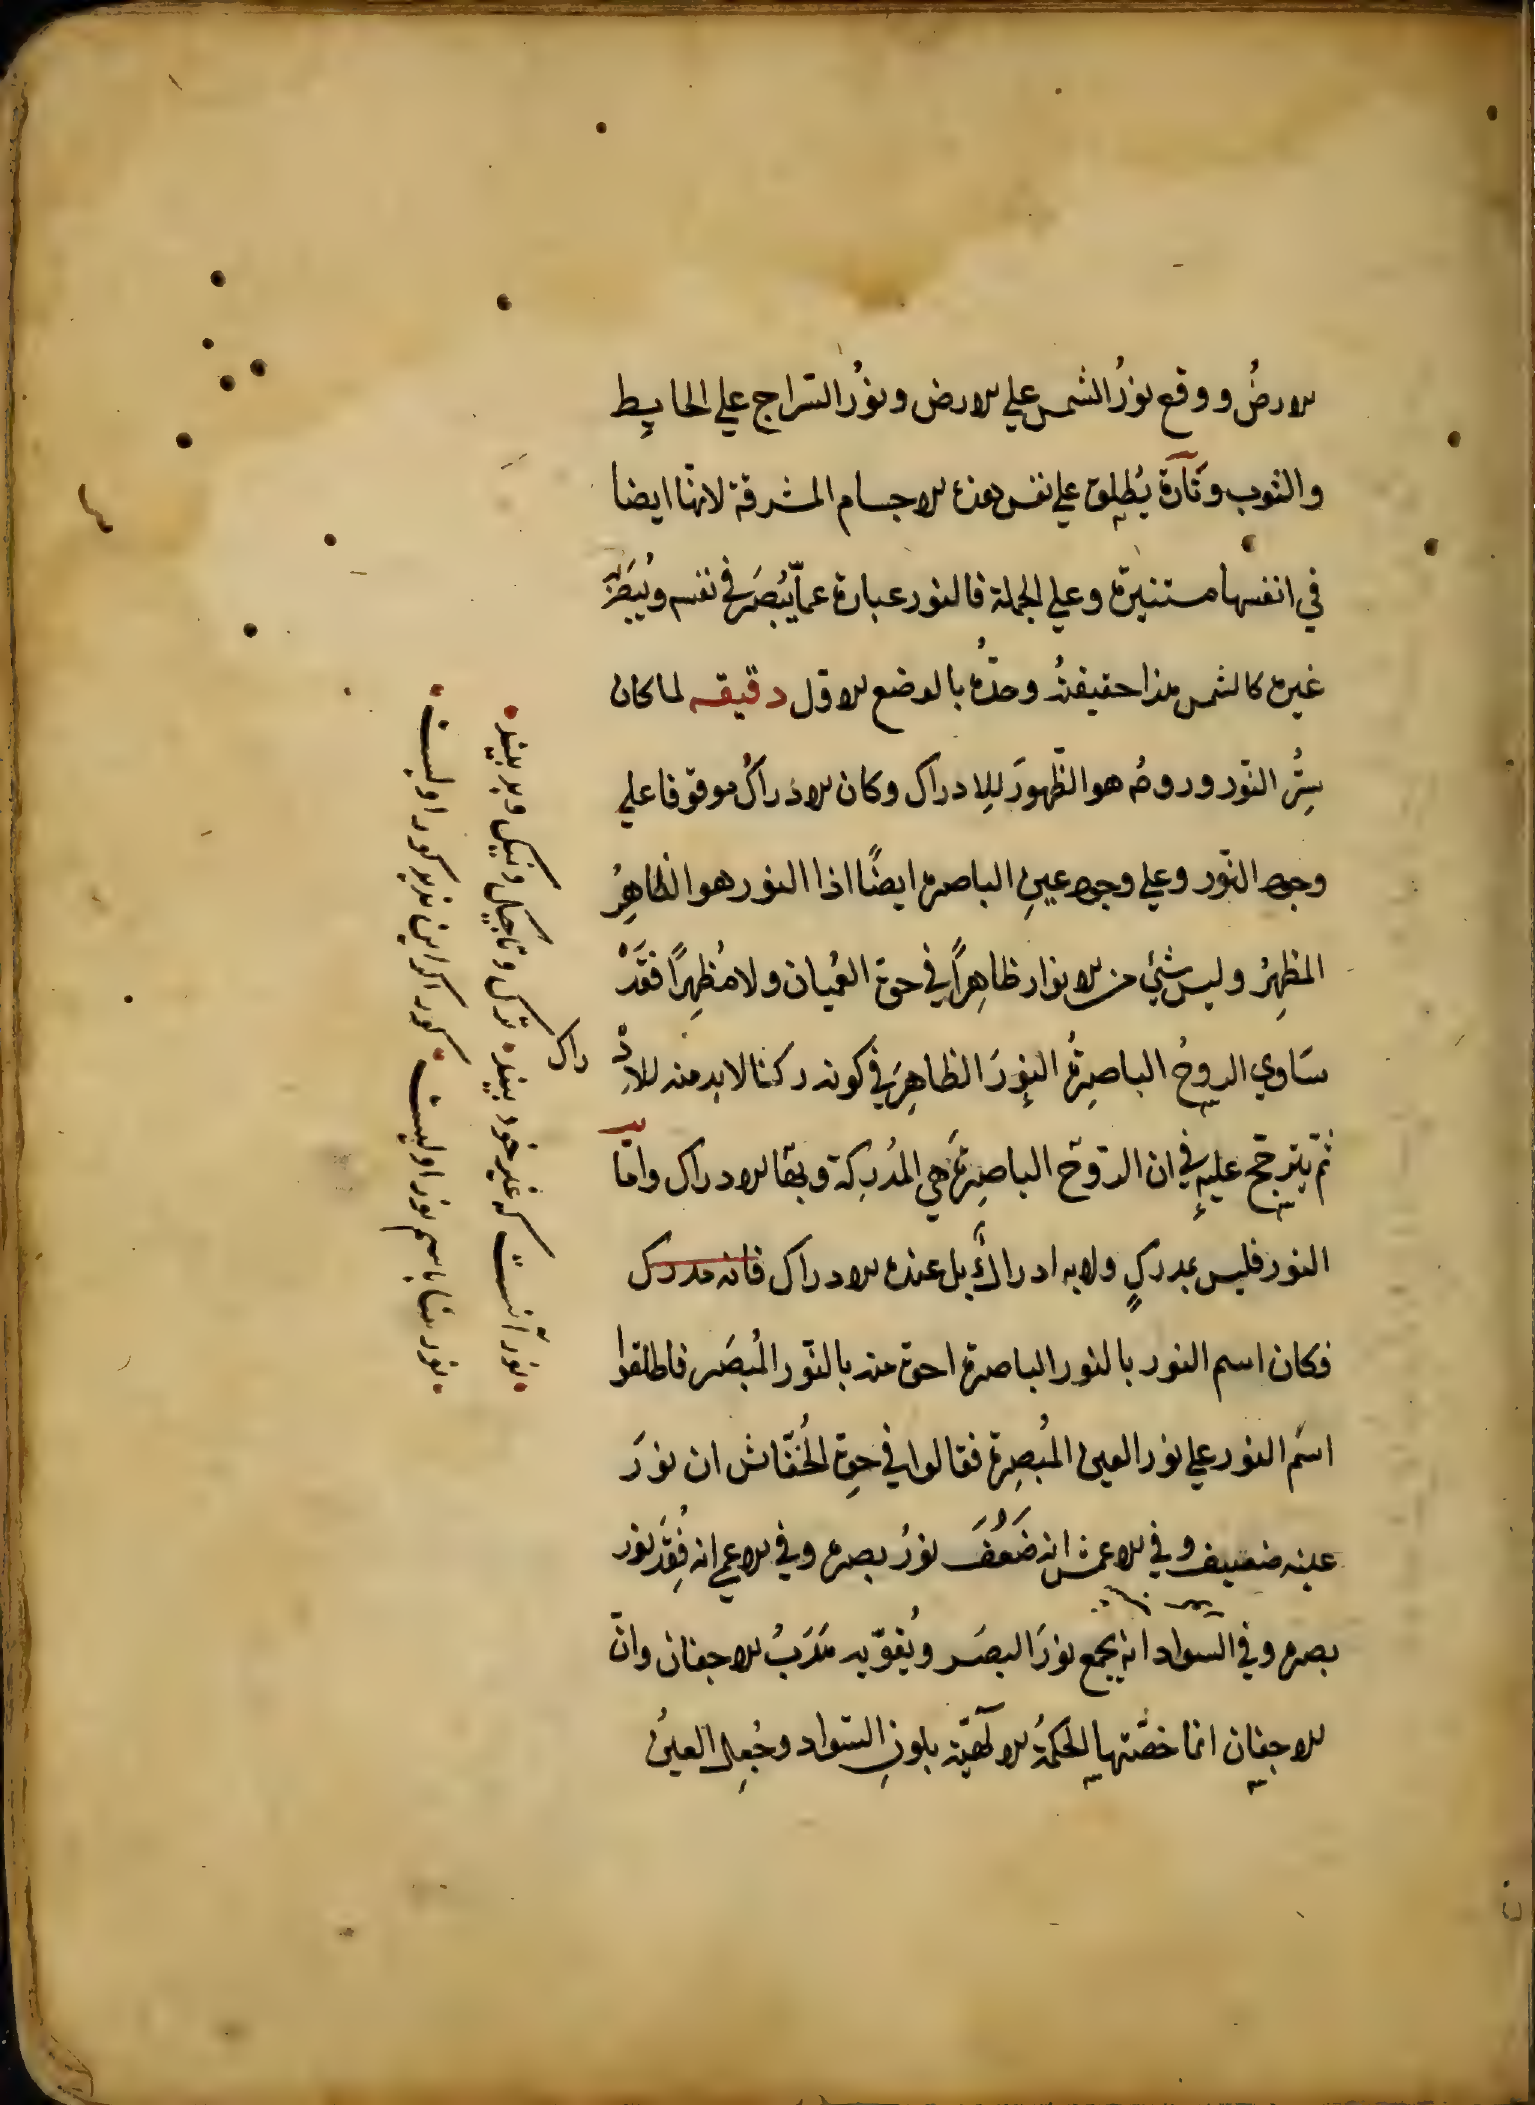 الارضُ ووقع نورُ الشمس علي الارض ونورُ السّراج علي الحايط
والثوب وتارة يُطلق علي نفس هذه الاجسام المشرقة لانهّا ايضا
في انفسها مستنيرة وعلي الجملة فالنور عبارة عمّا يُبصَر في نفسه ويُبصَر به
غيره كالشمس هذا حقيقتُه وحدّهُ بالوضع الاوّل دقيقه لما كان
سِرُّ النّور وروحُه هو الظّهورَ للادراك وكان الادراكُ موقوفا علي
وجود النّور وعلي وجود عينِ الباصرة ايضًا اذا النور هو الظاهِرُ
المظهِرُ وليس شيئ من الانوار ظاهِراً في حق العُميان ولا مُظهِرًا فقَدْ
سَاوي الروحُ الباصِرةُ النورَ الظاهِرَ في كونه ركنا لابد منه للادْ
راك
ثمّ يترجّح عليهِ في ان الرّوحَ الباصِرةَ هي المُدرِكة وبها الادراك وامّا
النور فليس بمدركٍ ولا به ادراكٌ بل عنده الادراك فانه مدرك
فكان اسم النور بالنور الباصرة احق منه بالنّور المُبصَر فاطلقوا
اسمَ النور علي نور العين المُبصِرة فقالوا في حقِ الخُفّاش ان نورَ
عينه ضعيف وفي الاعمش انه ضَعُفَ نورُ بصره وفي الاعمي انه فُقِدَ نور
بصره وفي السّواد انه يجمع نورَ البصَر ويُقوّيه مَدَبُ الاجفان وانّ
الاجفان انما خصّتها الحكمةُ الالٓهيّة بلونِ السّواد وجُعِل العينُ
نور آنست كه غير خود بيند • ترك و تاجيك و نيك و بد بيند •
• نور بينا باسم نور اوليست • كور اگر اين نديد كور اوليست •